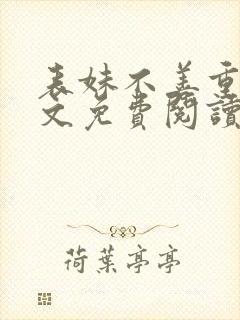 表妹不善重
文免費閱讀
荷葉亭亭